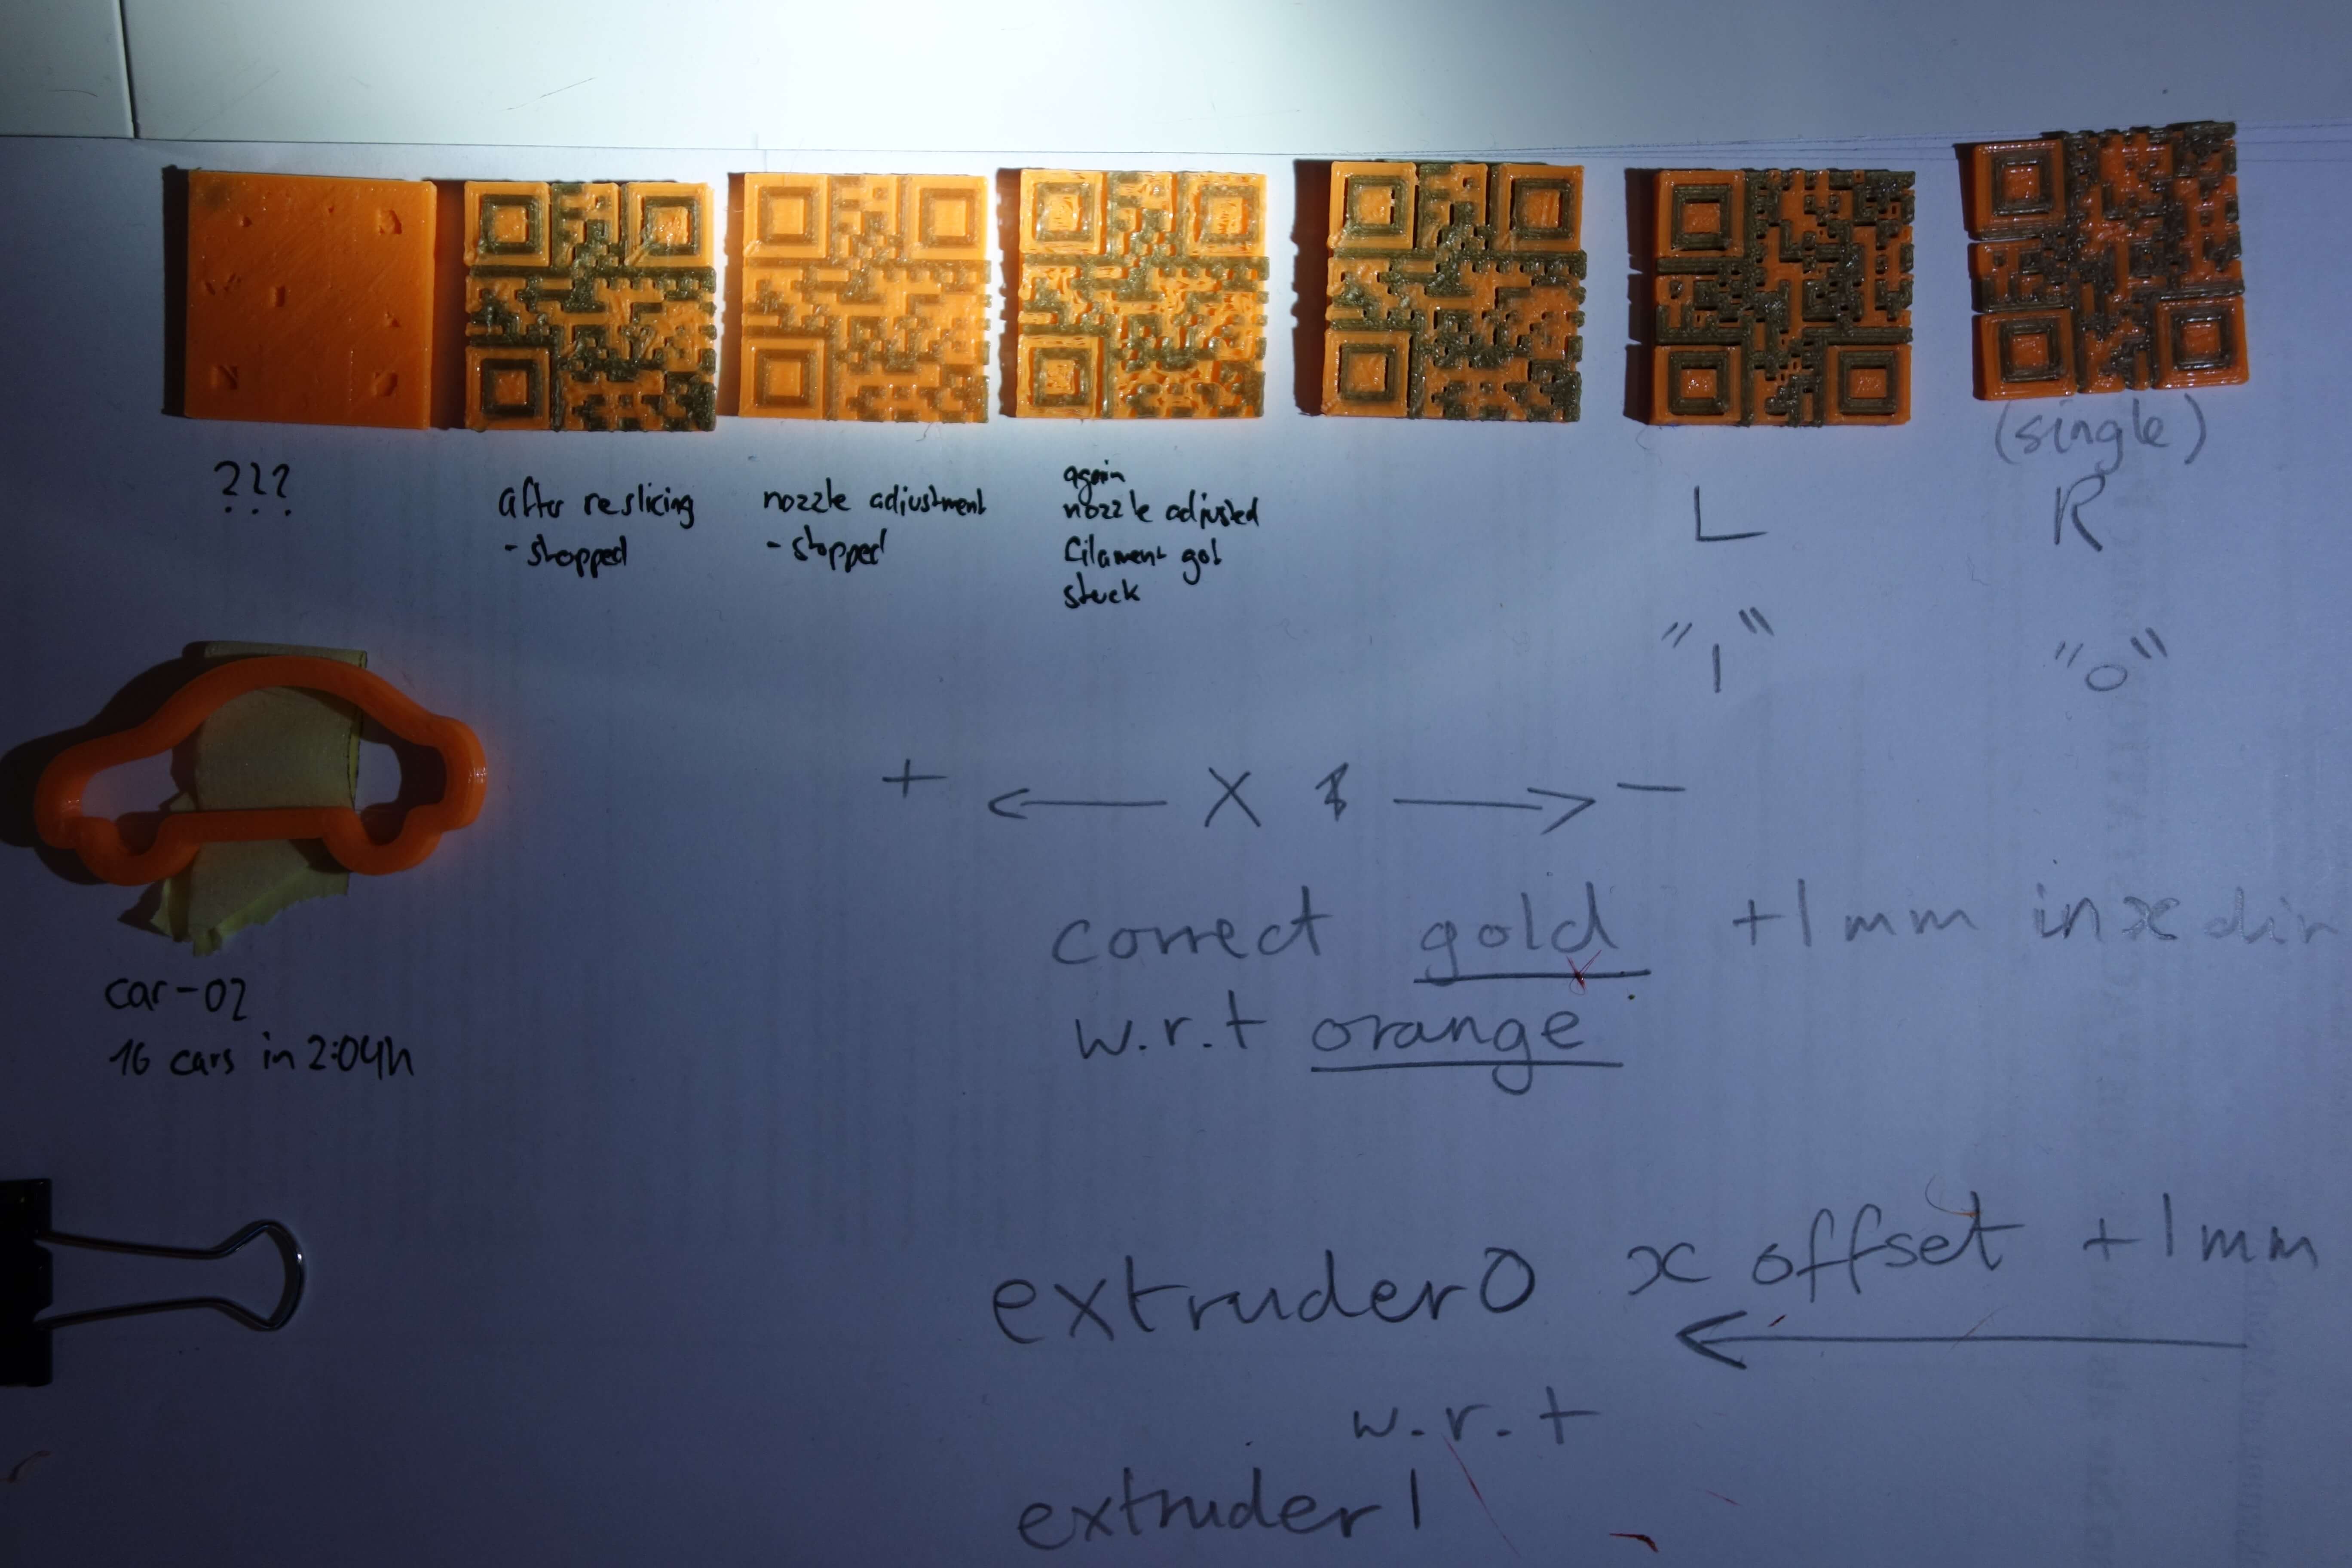 ???
after reslicing
- stopped
nozzle adjustment
- stopped
again
nozzle adjusted
filament got
stuck
(single)
L R
"1" "0"
+ ← X → −
correct gold +1mm in x dir
w.r.t orange
car-02
16 cars in 2:04h
extruder0 x offset +1mm
←
w.r.t
extruder1